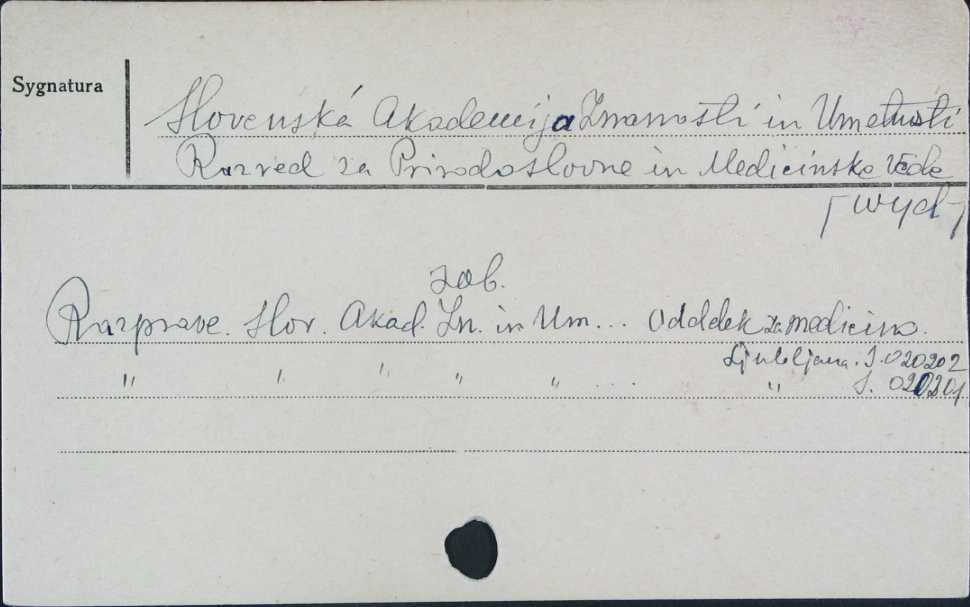 Sygnatura
Slovenská Akademija Znanosti in Umetnosti
Razred za Prirodoslovne in Medicinske Vede
[wyd]
zob.
Razprave. Slov. Akad. Zn. in Um... Odddek za medicino.
Ljubljana. S. 020202
" " " " " .... " S. 020201